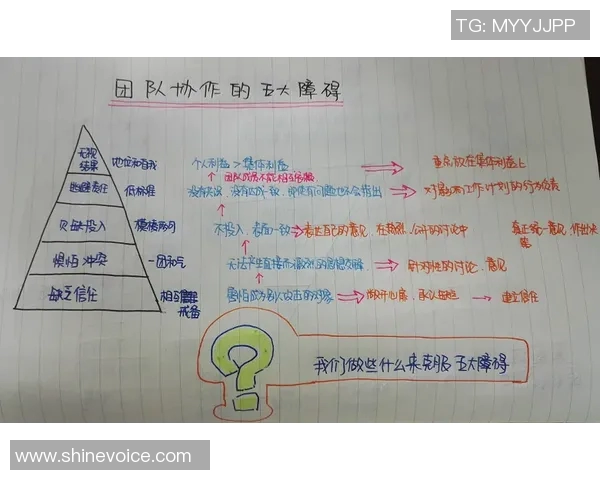 TG: MYYJJPP
团队协作的五大障碍
无视结果 地位和自我 个人利益 > 集体利益 重点放在集体利益上
团队成员不能相互
逃避责任 低标准 没有 对影响工作计划的行为负责
欠缺投入 模棱两可 不投入,表面一致 表达自己的意见,在 公开的讨论中 真正统一意见,作出决策
惧怕冲突 一团和气 无法产生直接而激烈的思想交锋 针对性的讨论、意见
缺乏信任 相互 戒备 害怕成为别人攻击的对象 敞开心扉,承认 建立信任
?
我们做些什么来克服五大障碍
www.shinevoice.com